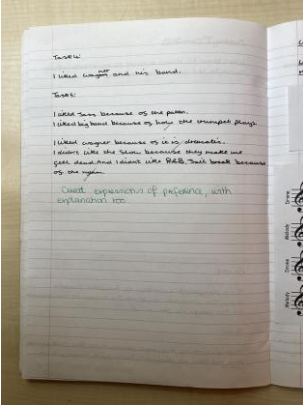 Task 4:
I liked wagner and his band.
Task 5:
I liked Jass because of the
I liked big band because of how the trumpet plays
I liked wagner because of it is dramatic.
I didnt like the slow because they make me
feel dead. And I didnt like R&B, Jail break because
of the
Good expressions of preference, with
explanation too.
Drums
Melody
Drums
Melody